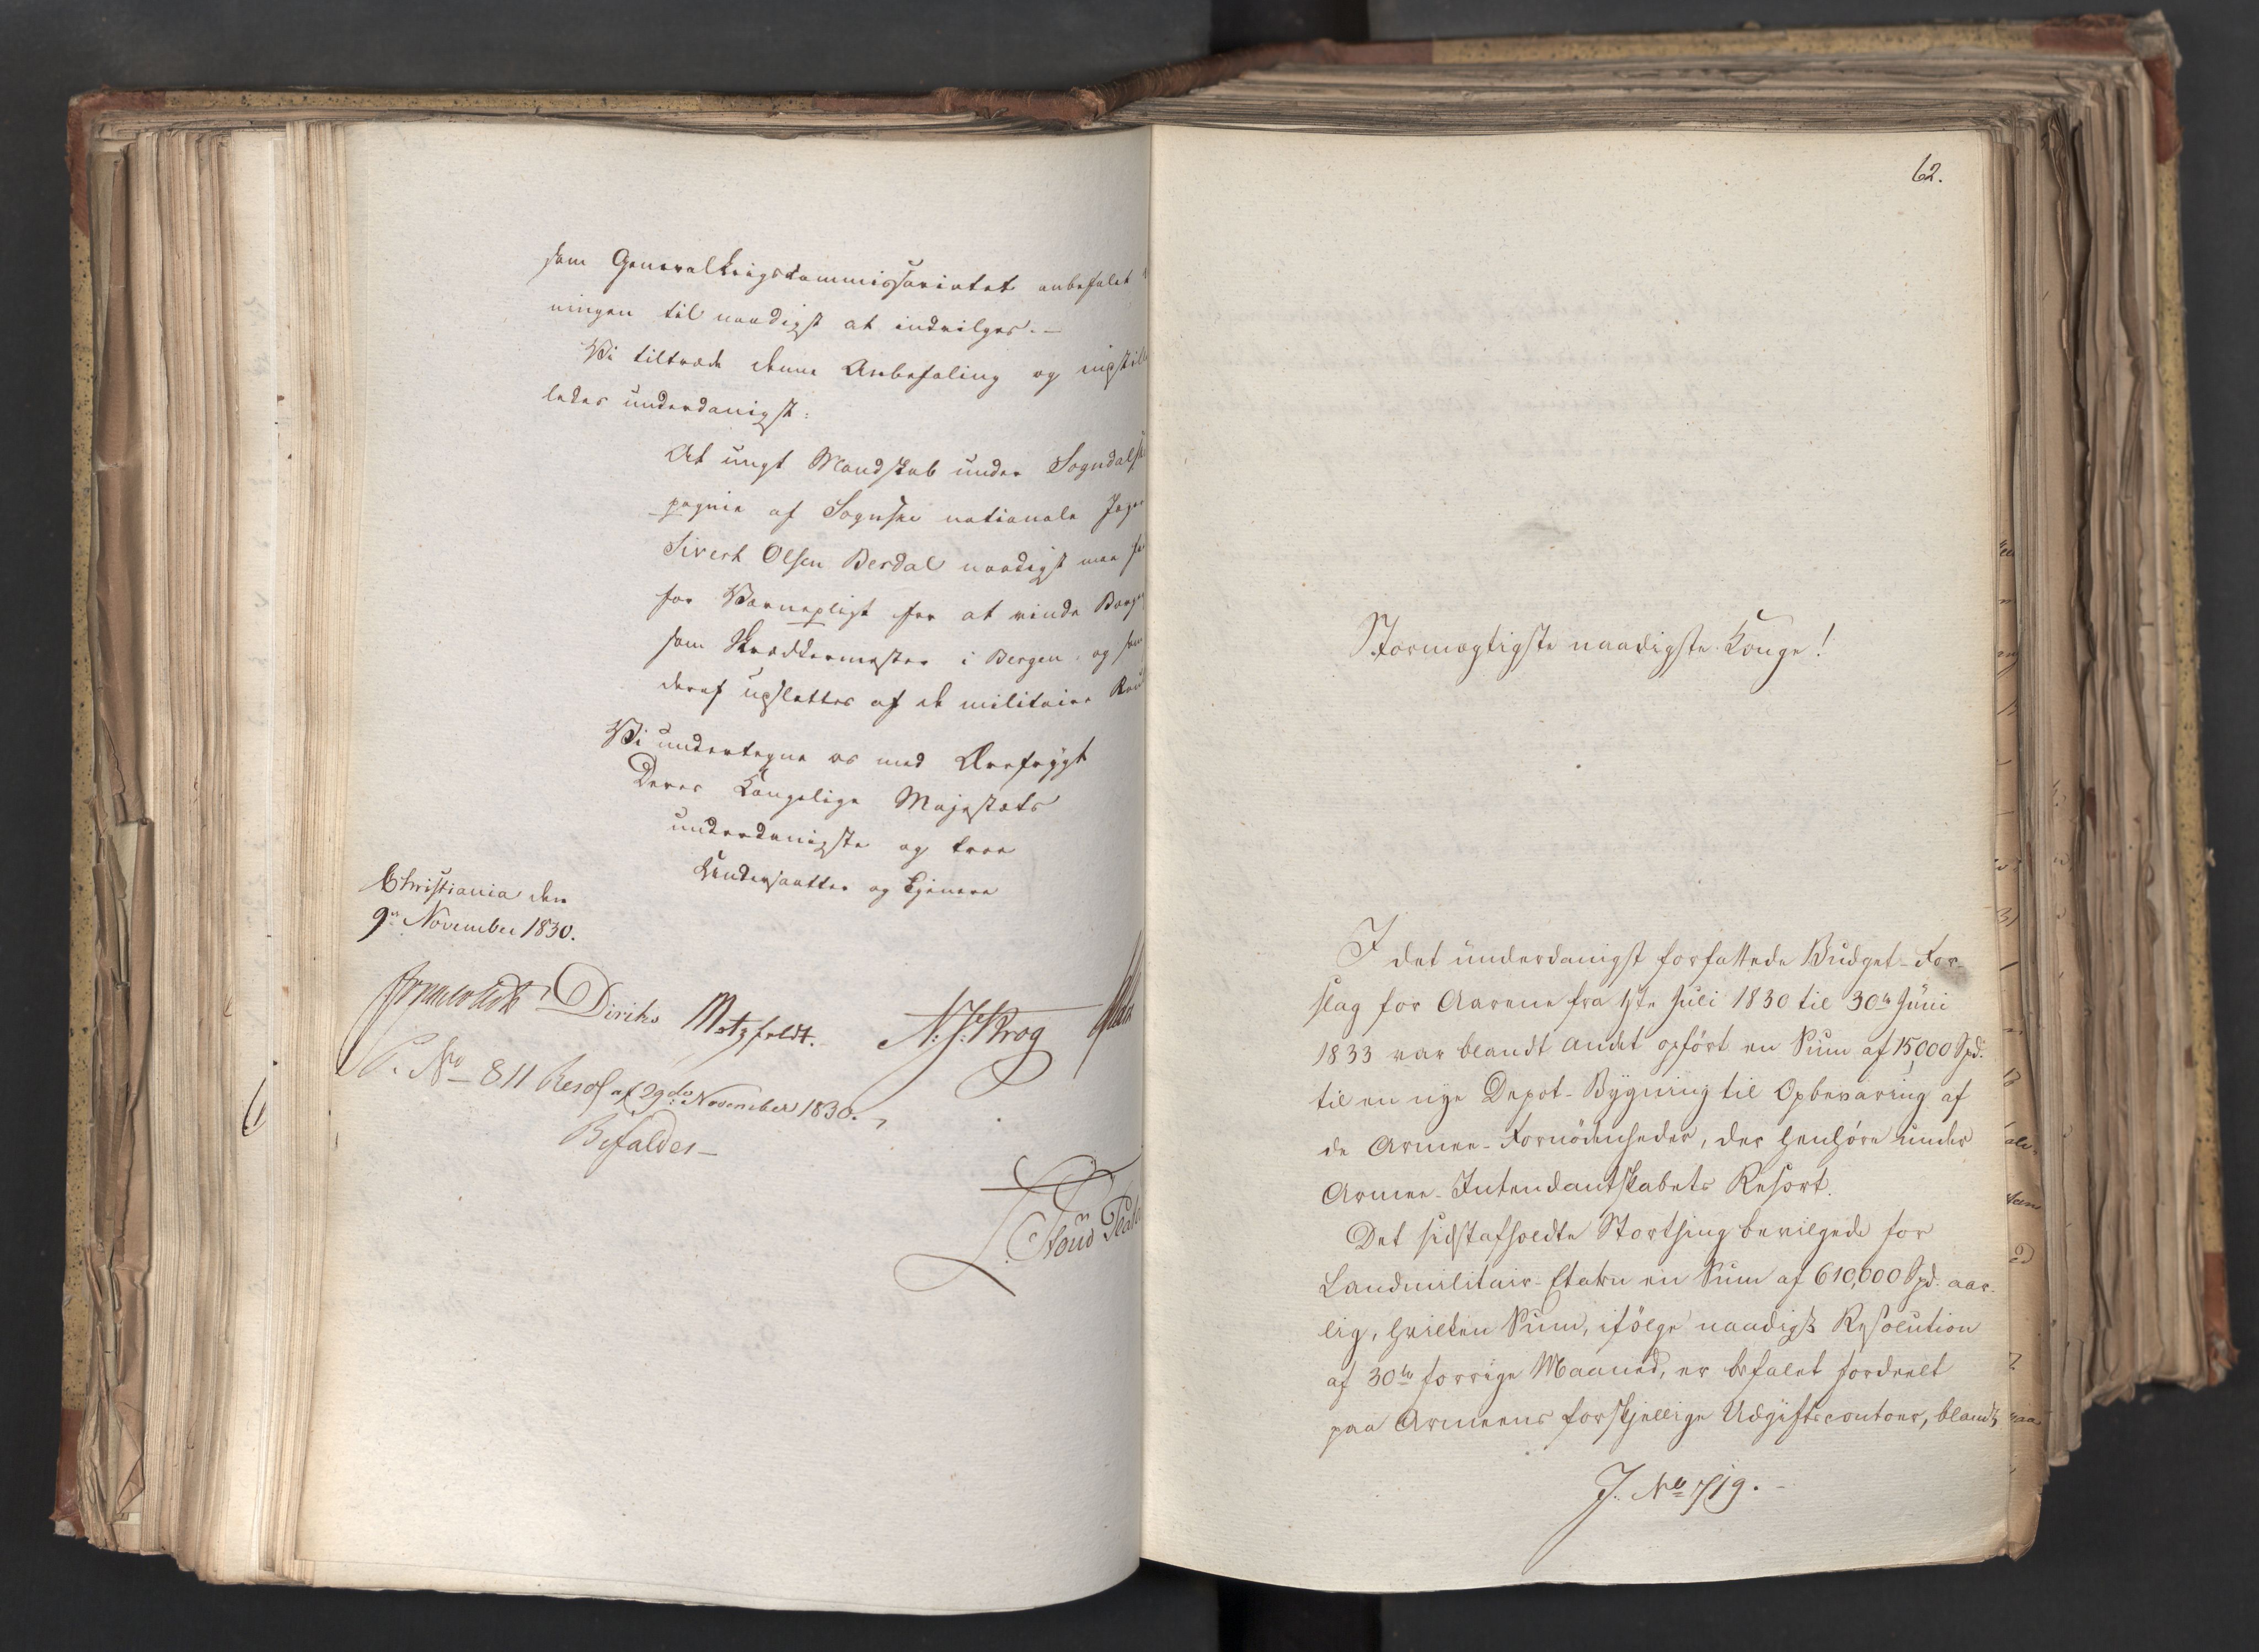 som Generalkrigscommissariatet anbefalet
ningen til naadigst at indvilges.-
Vi tiltræde denne Anbefaling og indstil
ledes underdanigst:
At ungt Mandskab under Sogndalsk
pagnie af Sognske nationale Jæger
Sivert Olsen Berdal naadigst maa
for Værnepligt for at vinde Borger
som Skrædkermester i Bergen, og
deraf udslettes af de militaire Rul
Vi undertegne os med Ærefrygt
Deres Kongelige Majestæts
underdanigste og troe
Undersaatter og Tjenere
Christiania den
9de November 1830.
Diriks Motzfeldt. N: J: Krog
P. No 811 Resol af 29de November 1830.
Bifaldes-
62.
Stormægtigste naadigste Konge!
I det underdanigst forfattede Budget-For-
slag for Aarene fra 1ste Juli 1830 til 30te Juni
1833 var blandt andet opført en Sum af 15,000 Spd.
til en nye Depot-Bygning til Opbevaring af
de Armee-Fornödenheder, der henhöre under
Armee-Intendantskabets Resort.
Det sidstafholdte Storthing bevilgede for
Landmilitair-Etaten en Sum af 610,000 Spd. aar-
lig, hvilken Sum, ifölge naadigst Resolution
af 30te forrige Maaned, er befalet fordeelt
paa Armeens forskjellige Udgiftscontoer, blandt
J. No 719.-